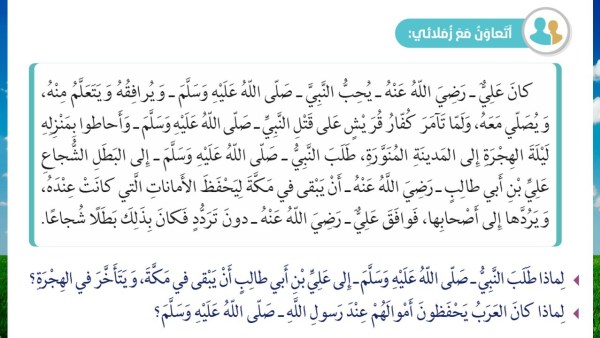 أَتَعاوَنُ مَعَ زُمَلائي:
كانَ عَلِيٌّ ـ رَضِيَ اللّٰهُ عَنْهُ ـ يُحِبُّ النَّبِيَّ ـ صَلَّى اللّٰهُ عَلَيْهِ وَسَلَّمَ ـ وَيُرافِقُهُ وَيَتَعَلَّمُ مِنْهُ،
وَيُصَلّي مَعَهُ، وَلَمّا تَآمَرَ كُفّارُ قُرَيْشٍ عَلى قَتْلِ النَّبِيِّ ـ صَلَّى اللّٰهُ عَلَيْهِ وَسَلَّمَ ـ وَأَحاطوا بِمَنْزِلِهِ
لَيْلَةَ الهِجْرَةِ إِلى المَدينَةِ المُنَوَّرَةِ، طَلَبَ النَّبِيُّ ـ صَلَّى اللّٰهُ عَلَيْهِ وَسَلَّمَ ـ إِلى البَطَلِ الشُّجاعِ
عَلِيِّ بْنِ أَبي طالِبٍ ـ رَضِيَ اللّٰهُ عَنْهُ ـ أَنْ يَبْقى في مَكَّةَ لِيَحْفَظَ الأَماناتِ الَّتي كانَتْ عِنْدَهُ،
وَيَرُدَّها إِلى أَصْحابِها، فَوافَقَ عَلِيٌّ ـ رَضِيَ اللّٰهُ عَنْهُ ـ دونَ تَرَدُّدٍ فَكانَ بِذَلِكَ بَطَلًا شُجاعًا.
لِماذا طَلَبَ النَّبِيُّ ـ صَلَّى اللّٰهُ عَلَيْهِ وَسَلَّمَ ـ إِلى عَلِيِّ بْنِ أَبي طالِبٍ أَنْ يَبْقى في مَكَّةَ، وَيَتَأَخَّرَ في الهِجْرَةِ؟
لِماذا كانَ العَرَبُ يَحْفَظونَ أَمْوالَهُمْ عِنْدَ رَسولِ اللّٰهِ ـ صَلَّى اللّٰهُ عَلَيْهِ وَسَلَّمَ؟